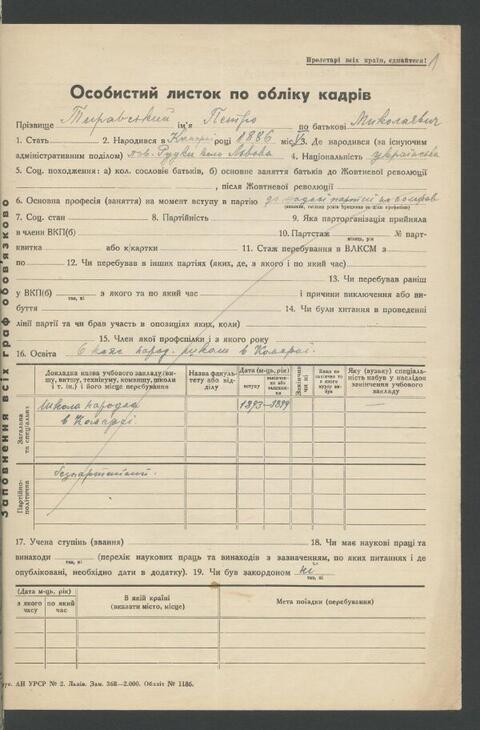 Пролетарі всіх країн, єднайтеся!
1
Особистий листок по обліку кадрів
Прізвище ім'я Петро по батькові Миколаєвич
1. Стать 2. Народився в році 1886 міс. 3. Де народився (за існуючим
адміністративним поділом) 4. Національність українська
5. Соц. походження: а) кол. сословіє батьків, б) основне заняття батьків до Жовтневої революції
, після Жовтневої революції
6. Основна професія (заняття) на момент вступу в партію
7. Соц. стан 8. Партійність 9. Яка парторганізація прийняла
в члени ВКП(б) 10. Партстаж місяць, рік № парт-
квитка або к/картки 11. Стаж перебування в ВЛКСМ з
по 12. Чи перебував в інших партіях (яких, де, з якого і по який час)
13. Чи перебував раніш
у ВКП(б) так, ні з якого та по який час і причини виключення або ви-
буття 14. Чи були хитання в проведенні
лінії партії та чи брав участь в опозиціях (яких, коли)
15. Член якої профспілки і з якого року
16. Освіта 6 клас народ. школи в
Докладна назва учбового закладу (ви-
шу, втишу, технікуму, комвишу, школи
і т. ін.) і його місце перебування
Назва факуль-
тету або від-
ділу
Дата (м-ць, рік)
вступу
Закінчив
чи ні
Яку (вузьку) спеціаль-
ність набув у наслідок
закінчення учбового
закладу
Загальна
та спеціальна
школа народна
в
1893–1899
Партійно-
політична
безпартійний.
17. Учена ступінь (звання) 18. Чи має наукові праці та
винаходи так, ні (перелік наукових праць та винаходів з зазначенням, по яких питаннях і де
опубліковані, необхідно дати в додатку). 19. Чи був закордоном ні так, ні
(Дата м-ць, рік)
з якого
часу
по який
час
В якій країні
(вказати місто, місце)
Мета поїздки (перебування)
АН УРСР № 2. Львів. Зам. 368—2.000. Обліт № 1186.
Заповнення всіх граф обов'язково